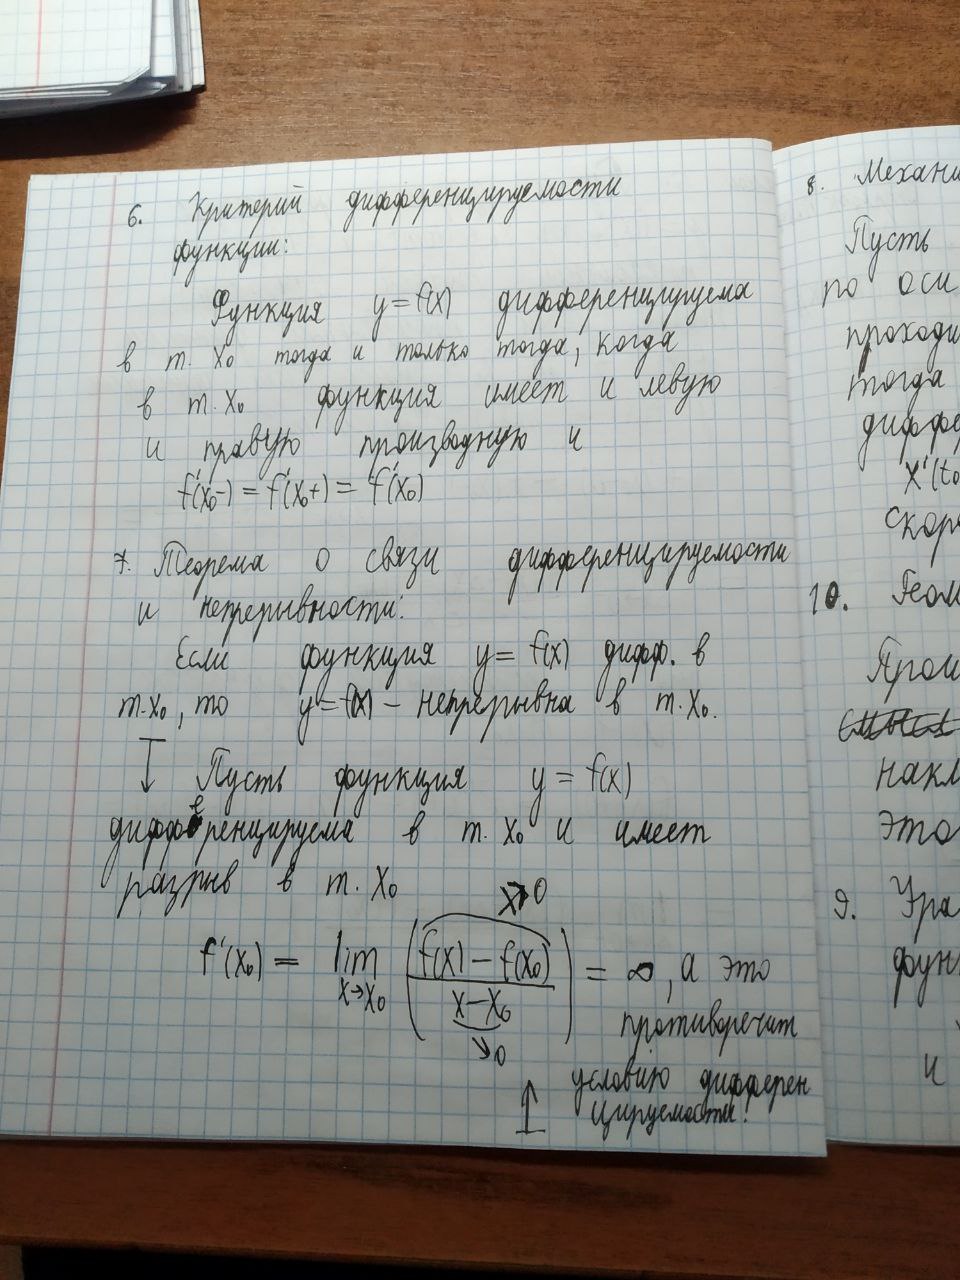 6. Критерий дифференцируемости
функции:
Функция y = f(x) дифференцируема
в т. x₀ тогда и только тогда, когда
в т. x₀ функция имеет и левую
и правую производную и
f'(x₀-) = f'(x₀+) = f'(x₀)
7. Теорема о связи дифференцируемости
и непрерывности:
Если функция y = f(x) дифф. в
т. x₀, то y = f(x) – непрерывна в т. x₀.
Пусть функция y = f(x)
дифференцируема в т. x₀ и имеет
разрыв в т. x₀
f'(x₀) = lim x→x₀ ((f(x) – f(x₀))/(x – x₀)) = ∞, а это
→0
противоречит
условию дифферен
цируемости.
8. Механи
Пусть
по оси
проходи
тогда
диффе
x'(t₀
скор
10. Геом
Прои
накл
это
9. Ура
функ
и